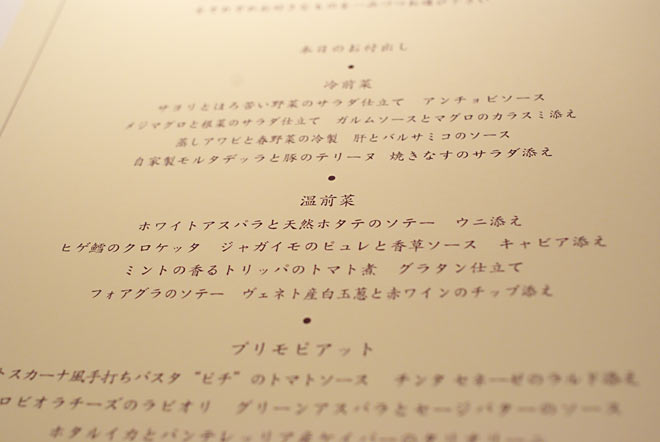 それぞれお好きなものを一品づつお選び下さい
本日のお付出し
•
冷前菜
サヨリとほろ苦い野菜のサラダ仕立て アンチョビソース
メジマグロと根菜のサラダ仕立て ガルムソースとマグロのカラスミ添え
蒸しアワビと春野菜の冷製 肝とバルサミコのソース
自家製モルタデッラと豚のテリーヌ 焼きなすのサラダ添え
•
温前菜
ホワイトアスパラと天然ホタテのソテー ウニ添え
ヒゲ鱈のクロケッタ ジャガイモのピュレと香草ソース キャビア添え
ミントの香るトリッパのトマト煮 グラタン仕立て
フォアグラのソテー ヴェネト産白玉葱と赤ワインのチップ添え
•
プリモピアット
トスカーナ風手打ちパスタ “ピチ”のトマトソース チンタ セネーゼのラルド添え
ロビオラチーズのラビオリ グリーンアスパラとセージバターのソース
ホタルイカとパンテレッリア産ケイパーの